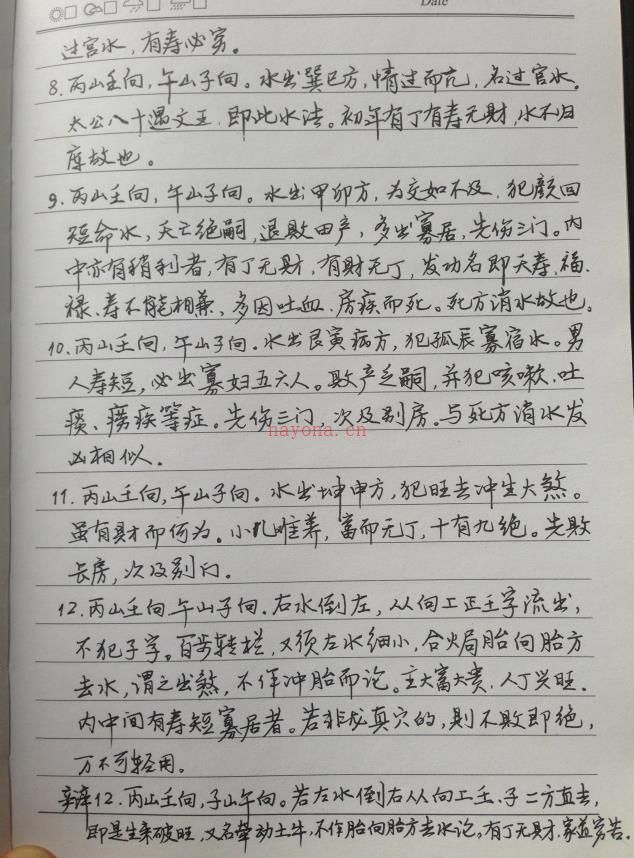 Date
过宫水，有寿必穷。
8.丙山壬向，午山子向。水出巽巳方，情过而亢，名过宫水，
太公八十遇文王，即此水法。初年有丁有寿无财，水不归
库故也。
9.丙山壬向，午山子向。水出甲卯方，为交如不及，犯颜回
短命水，夭亡绝嗣，退败田产，多出寡居，先伤三门。内
中亦有稍利者，有丁无财，有财无丁，发功名即夭寿，福、
禄、寿不能相兼，多因吐血、房疾而死。死方消水故也。
10.丙山壬向，午山子向。水出艮寅病方，犯孤辰寡宿水。男
人寿短，必出寡妇五六人。败产乏嗣，并犯咳嗽、吐
痰、痨疾等症。先伤三门，次及别房。与死方消水发
凶相似。
11.丙山壬向，午山子向。水出坤申方，犯旺去冲生大煞。
虽有财而何为。小儿难养，富而无丁，十有九绝。先败
长房，次及别门。
12.丙山壬向午山子向。右水倒左，从向上正壬字流出，
不犯子字。百步转栏，又须左水细小，合火局胎向胎方
去水，谓之出煞，不作冲胎而论。主大富大贵，人丁兴旺。
内中间有寿短寡居者。若非龙真穴的，则不败即绝，
万不可轻用。
辩12.丙山壬向，子山午向。若左水倒右从向上壬、子二方直去，
即是生来破旺，又名牵动土牛，不作胎向胎方去水论。有丁无财，家道穷苦。
nayona.cn